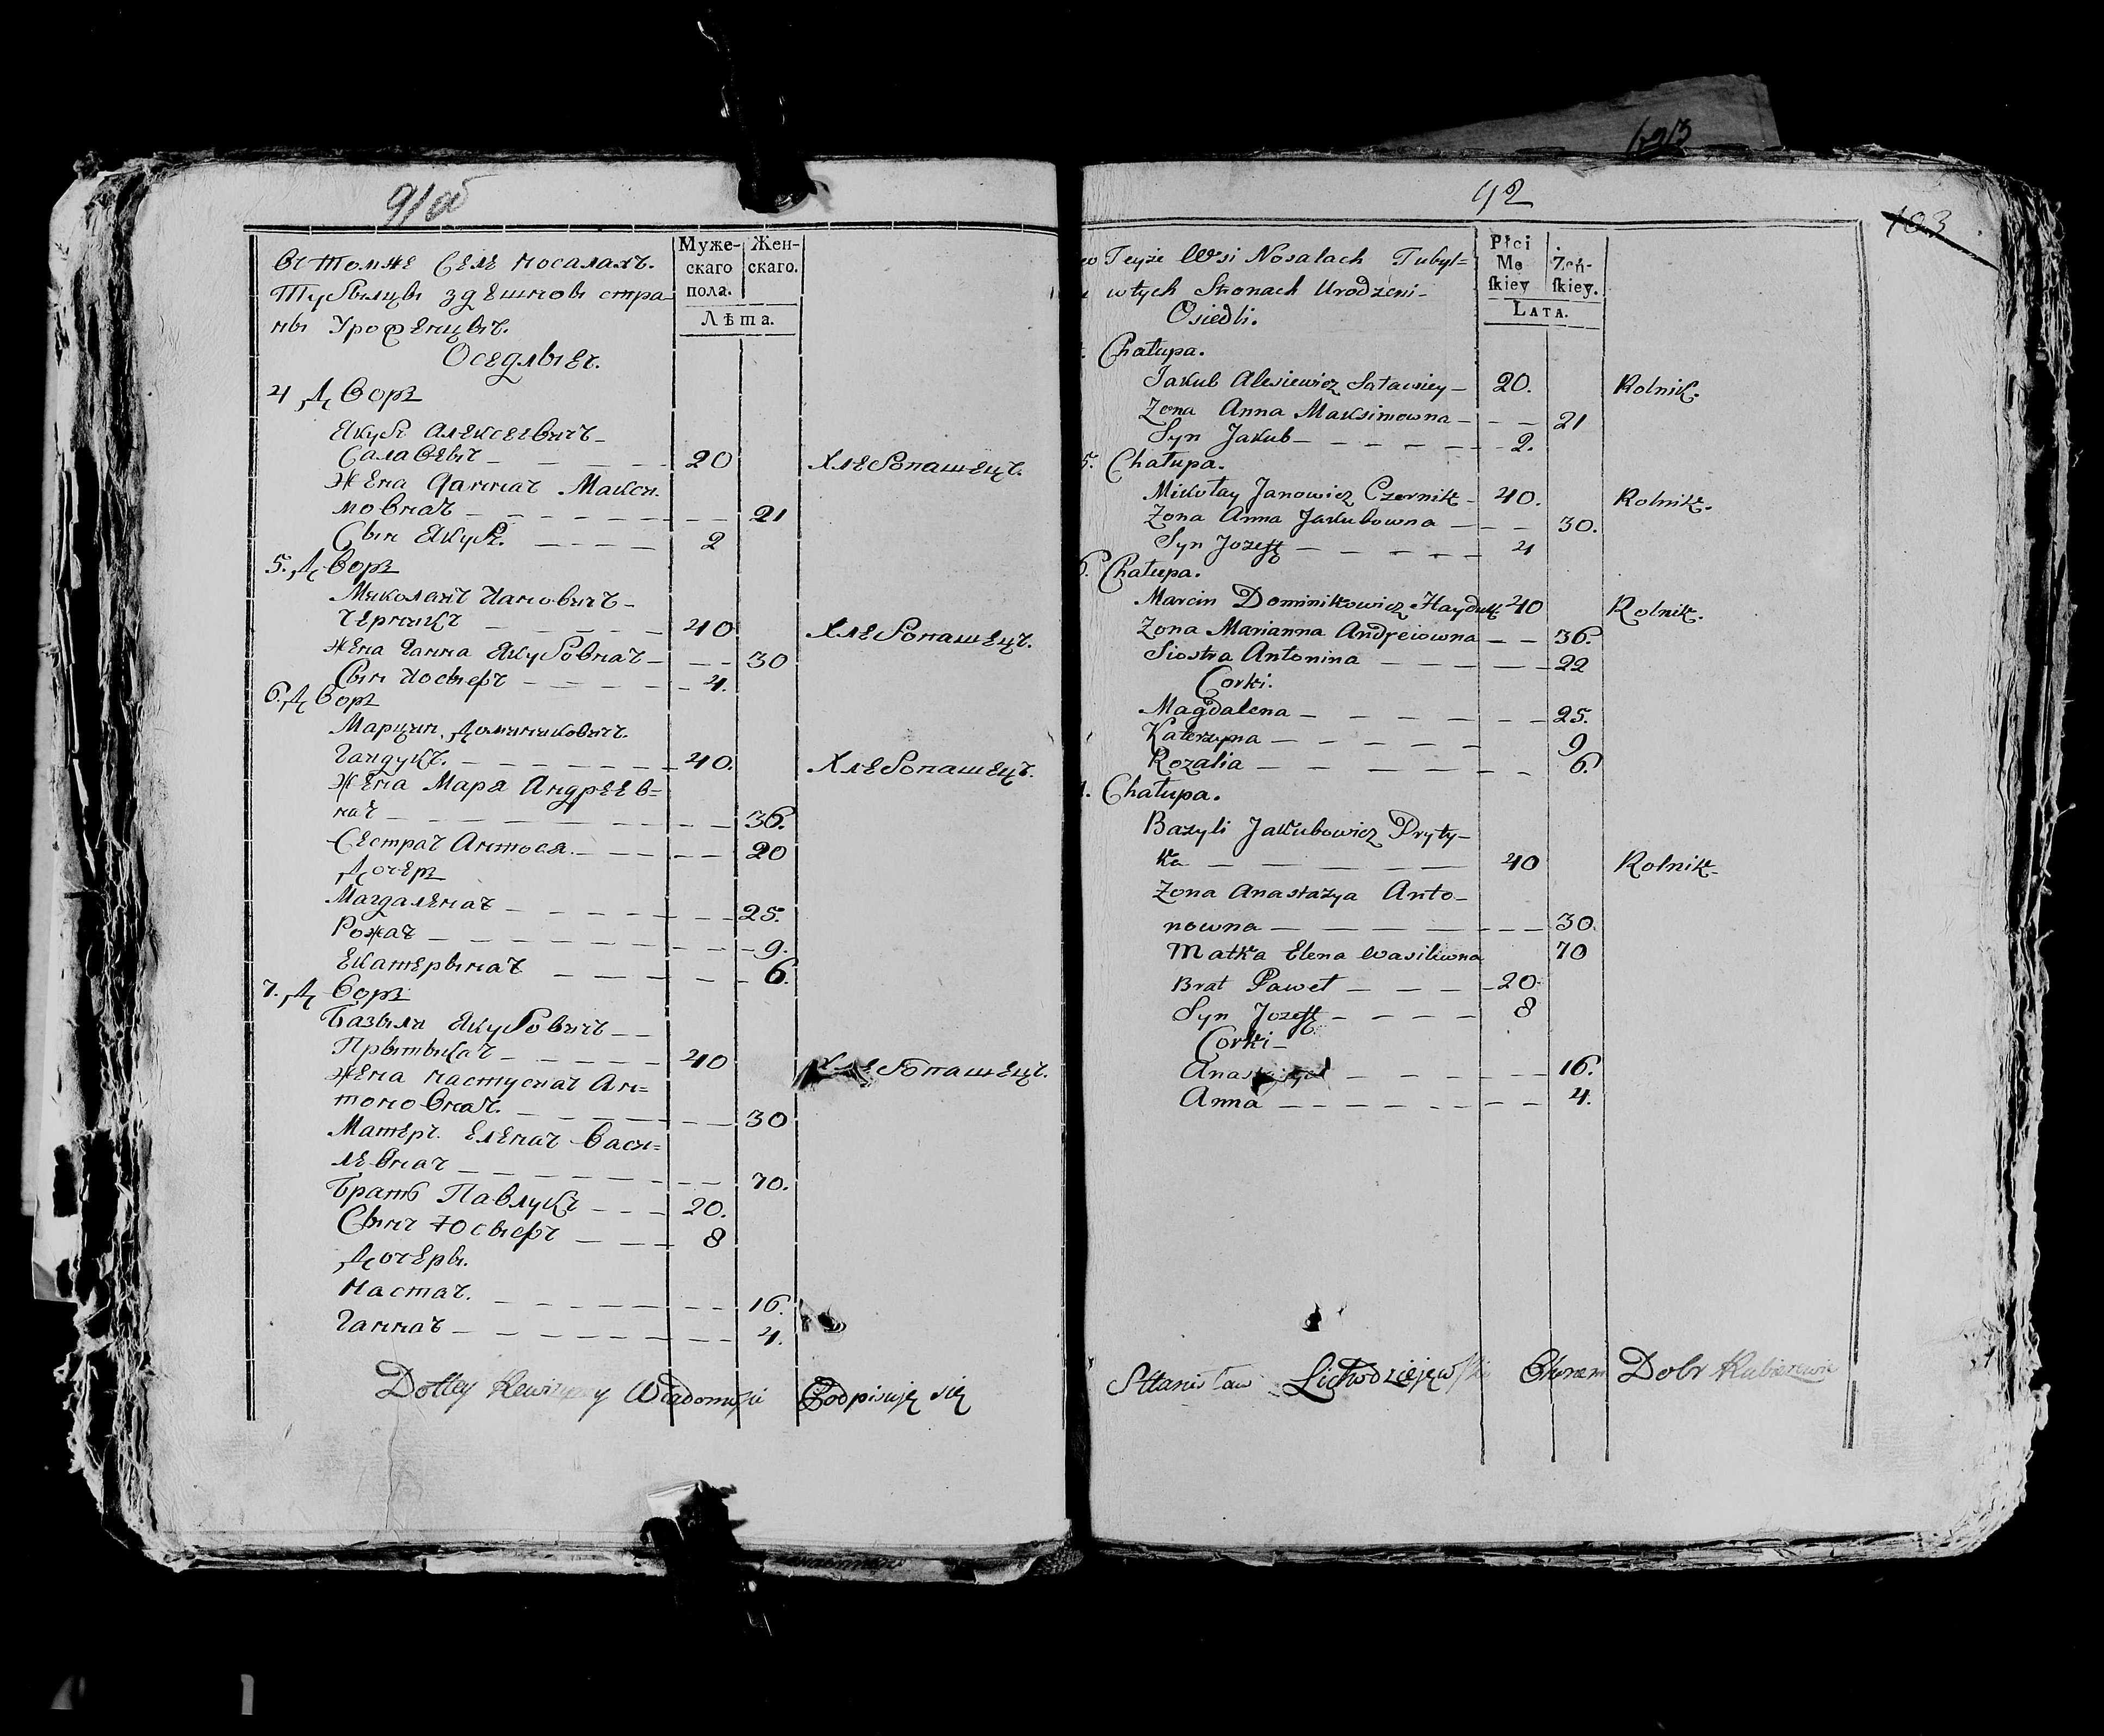 91об
Въ томже Селе Носалахъ.
Тубылцы здешнов стра-
ны Урожѣнцывъ.
Оседлыеъ.
Муже-
скаго
пола.
Жен-
скаго.
Лѣта.
4 Дворъ
Якубъ Алексеевичъ -
Салавеыъ - 20 Хлебопашецъ.
Жена Ганнаъ Макси-
мовнаъ - 21
Сын Якубъ. - 2
5. Дворъ
Миколаиъ Иановичъ -
Черникъ - 40 Хлебопашецъ.
Жена Ганна Якубовнаъ - 30
Сын Иосыефъ - 4.
6. Дворъ
Марцин Доминиковичъ.
Гандукъ. - 40. Хлебопашецъ.
Жена Маря Андреев=
наъ - 36.
Сестраъ Антося. - 20
Дочеръ
Магдаленаъ - 25.
Рожаъ - 9.
Екатерынаъ - 6.
7. Дворъ
Базыли Якубовичъ -
Прытыкаъ - 40 Хлебопашецъ.
Жена Настуснаъ Ан=
тоновнаъ. - 30
Матеръ. Еленаъ Васи=
левнаъ - 70.
Братъ Павлукъ - 20.
Сынъ Юсыефъ - 8
Дочеры.
Настаъ. - 16.
Ганнаъ - 4.
Dolley Rewizyey Wiadomski Podpisuję się
92
103
w Teyże Wsi Nosalach Tubyl=
wtych Stronach Urodzeni -
Osiedli.
Płci
Mę
skiey
Żeń-
skiey.
LATA.
Chałupa.
Jakub Alexiewicz Saławiey - 20. Rolnik.
Zona Anna Maksimowna - 21
Syn Jakub - 2.
5. Chałupa.
Mikołay Janowicz Czernik - 40. Rolnik.
Zona Anna Jakubowna - 30.
Syn Jozeff - 4
6. Chałupa.
Marcin Dominikowicz Hayduk 40 Rolnik.
Zona Marianna Andreiowna - 36.
Siostra Antonina - 22
Corki.
Magdalena - 25.
Katerzyna - 9
Rozalia - 6.
Chałupa.
Bazyli Jakubowicz Pryty-
ka - 40 Rolnik -
Zona Anastazya Anto-
nowna - 30.
Matka Elena Wasilewna 70
Brat Paweł - 20.
Syn Jozeff - 8
Corki -
Anastazya - 16.
Anna - 4.
Stanisław Lichodziejewski Ekonom Dobr Rubieżewic